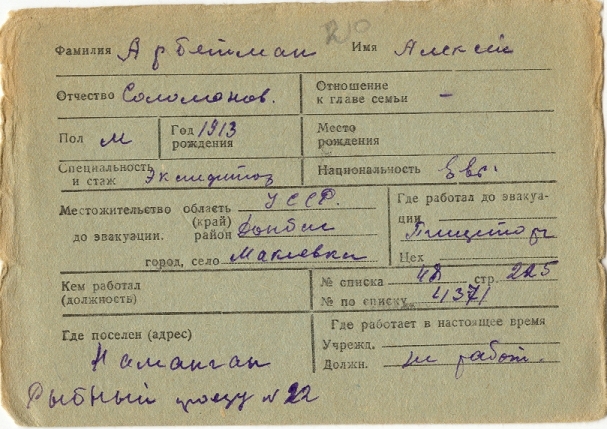 210
Фамилия Арбетман Имя Алексей
Отчество Соломонов. Отношение к главе семьи -
Пол м Год рождения 1913 Место рождения
Специальность и стаж Экспедитор Национальность Евр.
Местожительство до эвакуации. область (край) УССР. Где работал до эвакуации
район Донбас Пищеторг
город, село Макеевка Цех
Кем работал (должность) № списка 48 стр. 225
№ по списку 4371
Где поселен (адрес) Где работает в настоящее время
Наманган Учрежд.
Должн. не работ.
Рыбный проезд № 22